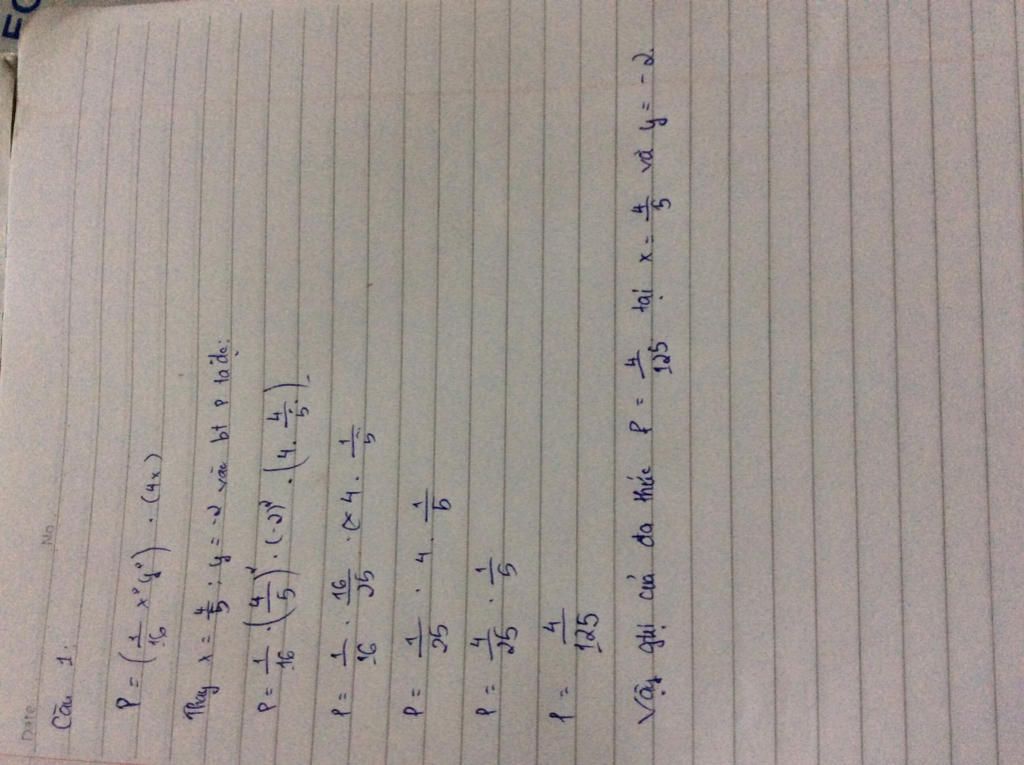 Date
No
Câu 1.
P = (1/16 x²(y²)) . (4x)
Thay x = 4/5 ; y = -2 vào bt P ta đc:
P = 1/16 . (4/5)² . (-2)² . (4 . 4/5)
P = 1/16 . 16/25 . 4 . 1/5
P = 1/25 . 4 . 1/5
P = 4/25 . 1/5
P = 4/125
Vậy giá trị của đa thức P = 4/125 tại x = 4/5 và y = -2.